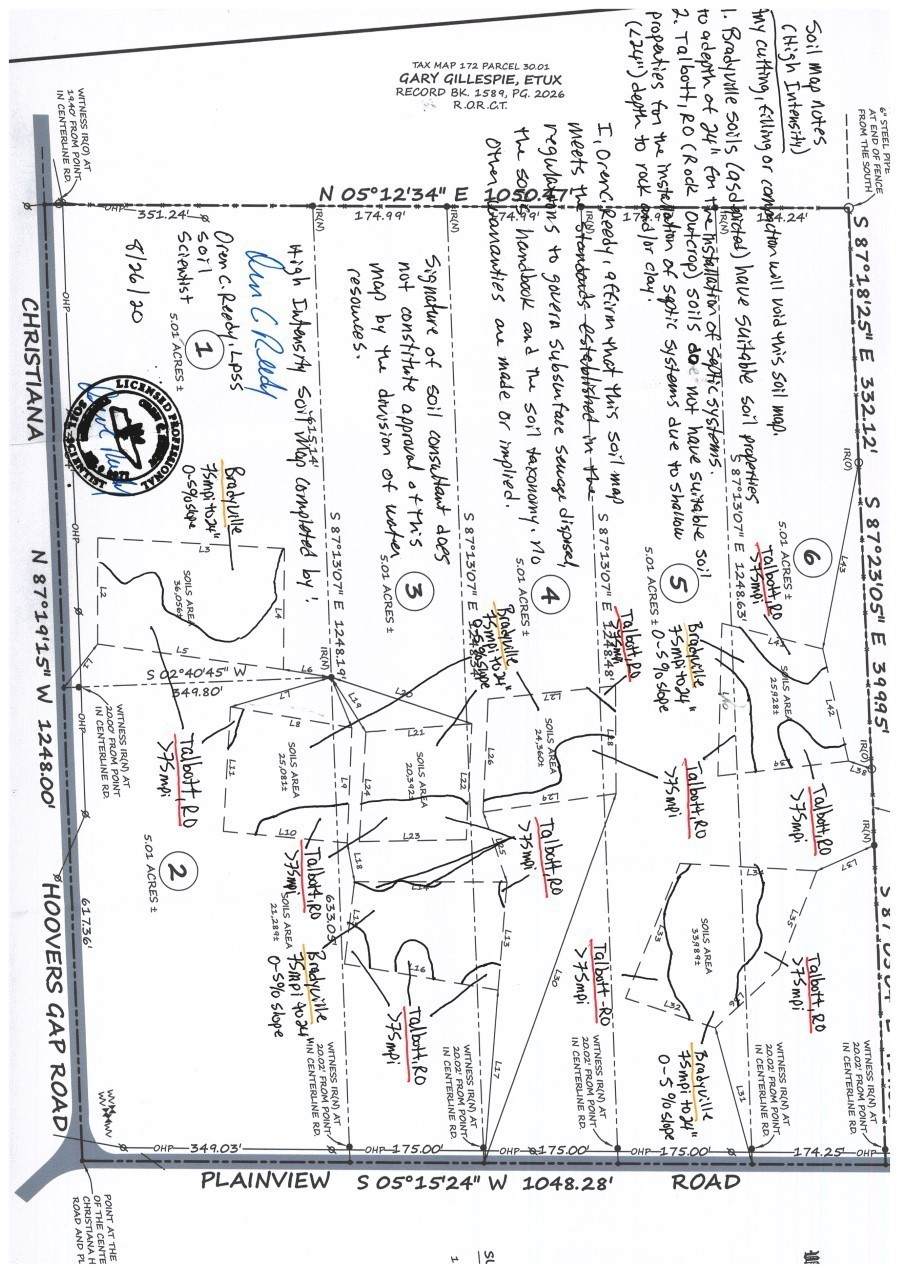 Soil Map Notes
(High Intensity)
Any cutting, filling or compaction will void this soil map.
1. Bradyville soils (as depicted) have suitable soil properties
to a depth of 24" for the installation of septic systems.
2. Talbott, RO (Rock Outcrop) soils do not have suitable soil
properties for the installation of septic systems due to shallow
(<24") depth to rock and/or clay.
I, Oren C. Reedy, affirm that this soil map
meets the standards established in the
regulations to govern subsurface sewage disposal,
the soils handbook and the soil taxonomy. No
other warranties are made or implied.
Signature of soil consultant does
not constitute approval of this
map by the division of water
resources.
High Intensity Soil Map completed by:
Oren C Reedy
Oren C. Reedy, LPSS
Soil
Scientist
8/26/20
TAX MAP 172 PARCEL 30.01
GARY GILLESPIE, ETUX
RECORD BK. 1589, PG. 2026
R.O.R.C.T.
6" STEEL PIPE
AT END OF FENCE
FROM THE SOUTH
WITNESS IR(O) AT
19.40' FROM POINT
IN CENTERLINE RD.
N 05°12'34" E 1050.47'
351.24'
174.99'
174.99'
174.24'
IR(N)
IR(N)
IR(N)
IR(N)
S 87°18'25" E 332.12'
IR(O)
S 87°23'05" E 399.95'
IR(O)
IR(N)
6
5.01 ACRES ±
Talbott, RO
>75mpi
L43
L41
L42
SOILS AREA
25,928±
L40
L39
L38
Talbott, RO
>75mpi
L37
S 87°13'07" E 1248.63'
5
5.01 ACRES ±
Bradyville
75mpi to 24"
0-5% slope
Talbott, RO
>75mpi
L34
L35
SOILS AREA
33,989±
L33
L32
L36
L31
Talbott, RO
>75mpi
Bradyville
75mpi to 24"
0-5% slope
S 87°13'07" E 1248.48'
Talbott, RO
>75mpi
4
5.01 ACRES ±
Bradyville
75mpi to 24"
0-5% slope
L27
L28
SOILS AREA
24,360±
L26
L29
L25
Talbott, RO
>75mpi
L30
Talbott-RO
>75mpi
S 87°13'07" E
3
5.01 ACRES ±
L20
L21
L19
SOILS AREA
20,392±
L22
L24
L23
L18
L14
L13
L16
L17
Talbott, RO
>75mpi
S 87°13'07" E 1248.19'
615.14'
633.05'
1
5.01 ACRES ±
LICENSED PROFESSIONAL
SOIL SCIENTIST
Bradyville
75mpi to 24"
0-5% slope
L3
L2
SOILS AREA
36,056±
L4
L5
L6
L1
S 02°40'45" W
349.80'
IR(N)
L7
L8
L11
SOILS AREA
25,081±
L9
L10
Talbott, RO
>75mpi
2
5.01 ACRES ±
Talbott, RO
>75mpi
SOILS AREA
21,289±
Bradyville
75mpi to 24"
0-5% slope
WITNESS IR(N) AT
20.00' FROM POINT
IN CENTERLINE RD.
WITNESS IR(N) AT
20.02' FROM POINT
IN CENTERLINE RD.
WITNESS IR(N) AT
20.02' FROM POINT
IN CENTERLINE RD.
WITNESS IR(N) AT
20.02' FROM POINT
IN CENTERLINE RD.
WITNESS IR(N) AT
20.02' FROM POINT
IN CENTERLINE RD.
WITNESS IR(N) AT
20.02' FROM POINT
IN CENTERLINE RD.
OHP
349.03'
OHP
175.00'
OHP
175.00'
OHP
175.00'
OHP
174.25'
PLAINVIEW S 05°15'24" W 1048.28' ROAD
CHRISTIANA N 87°19'15" W 1248.00' HOOVERS GAP ROAD
617.36'
OHP
OHP
OHP
OHP
POINT AT THE
OF THE CENTE
CHRISTIANA H
ROAD AND PL